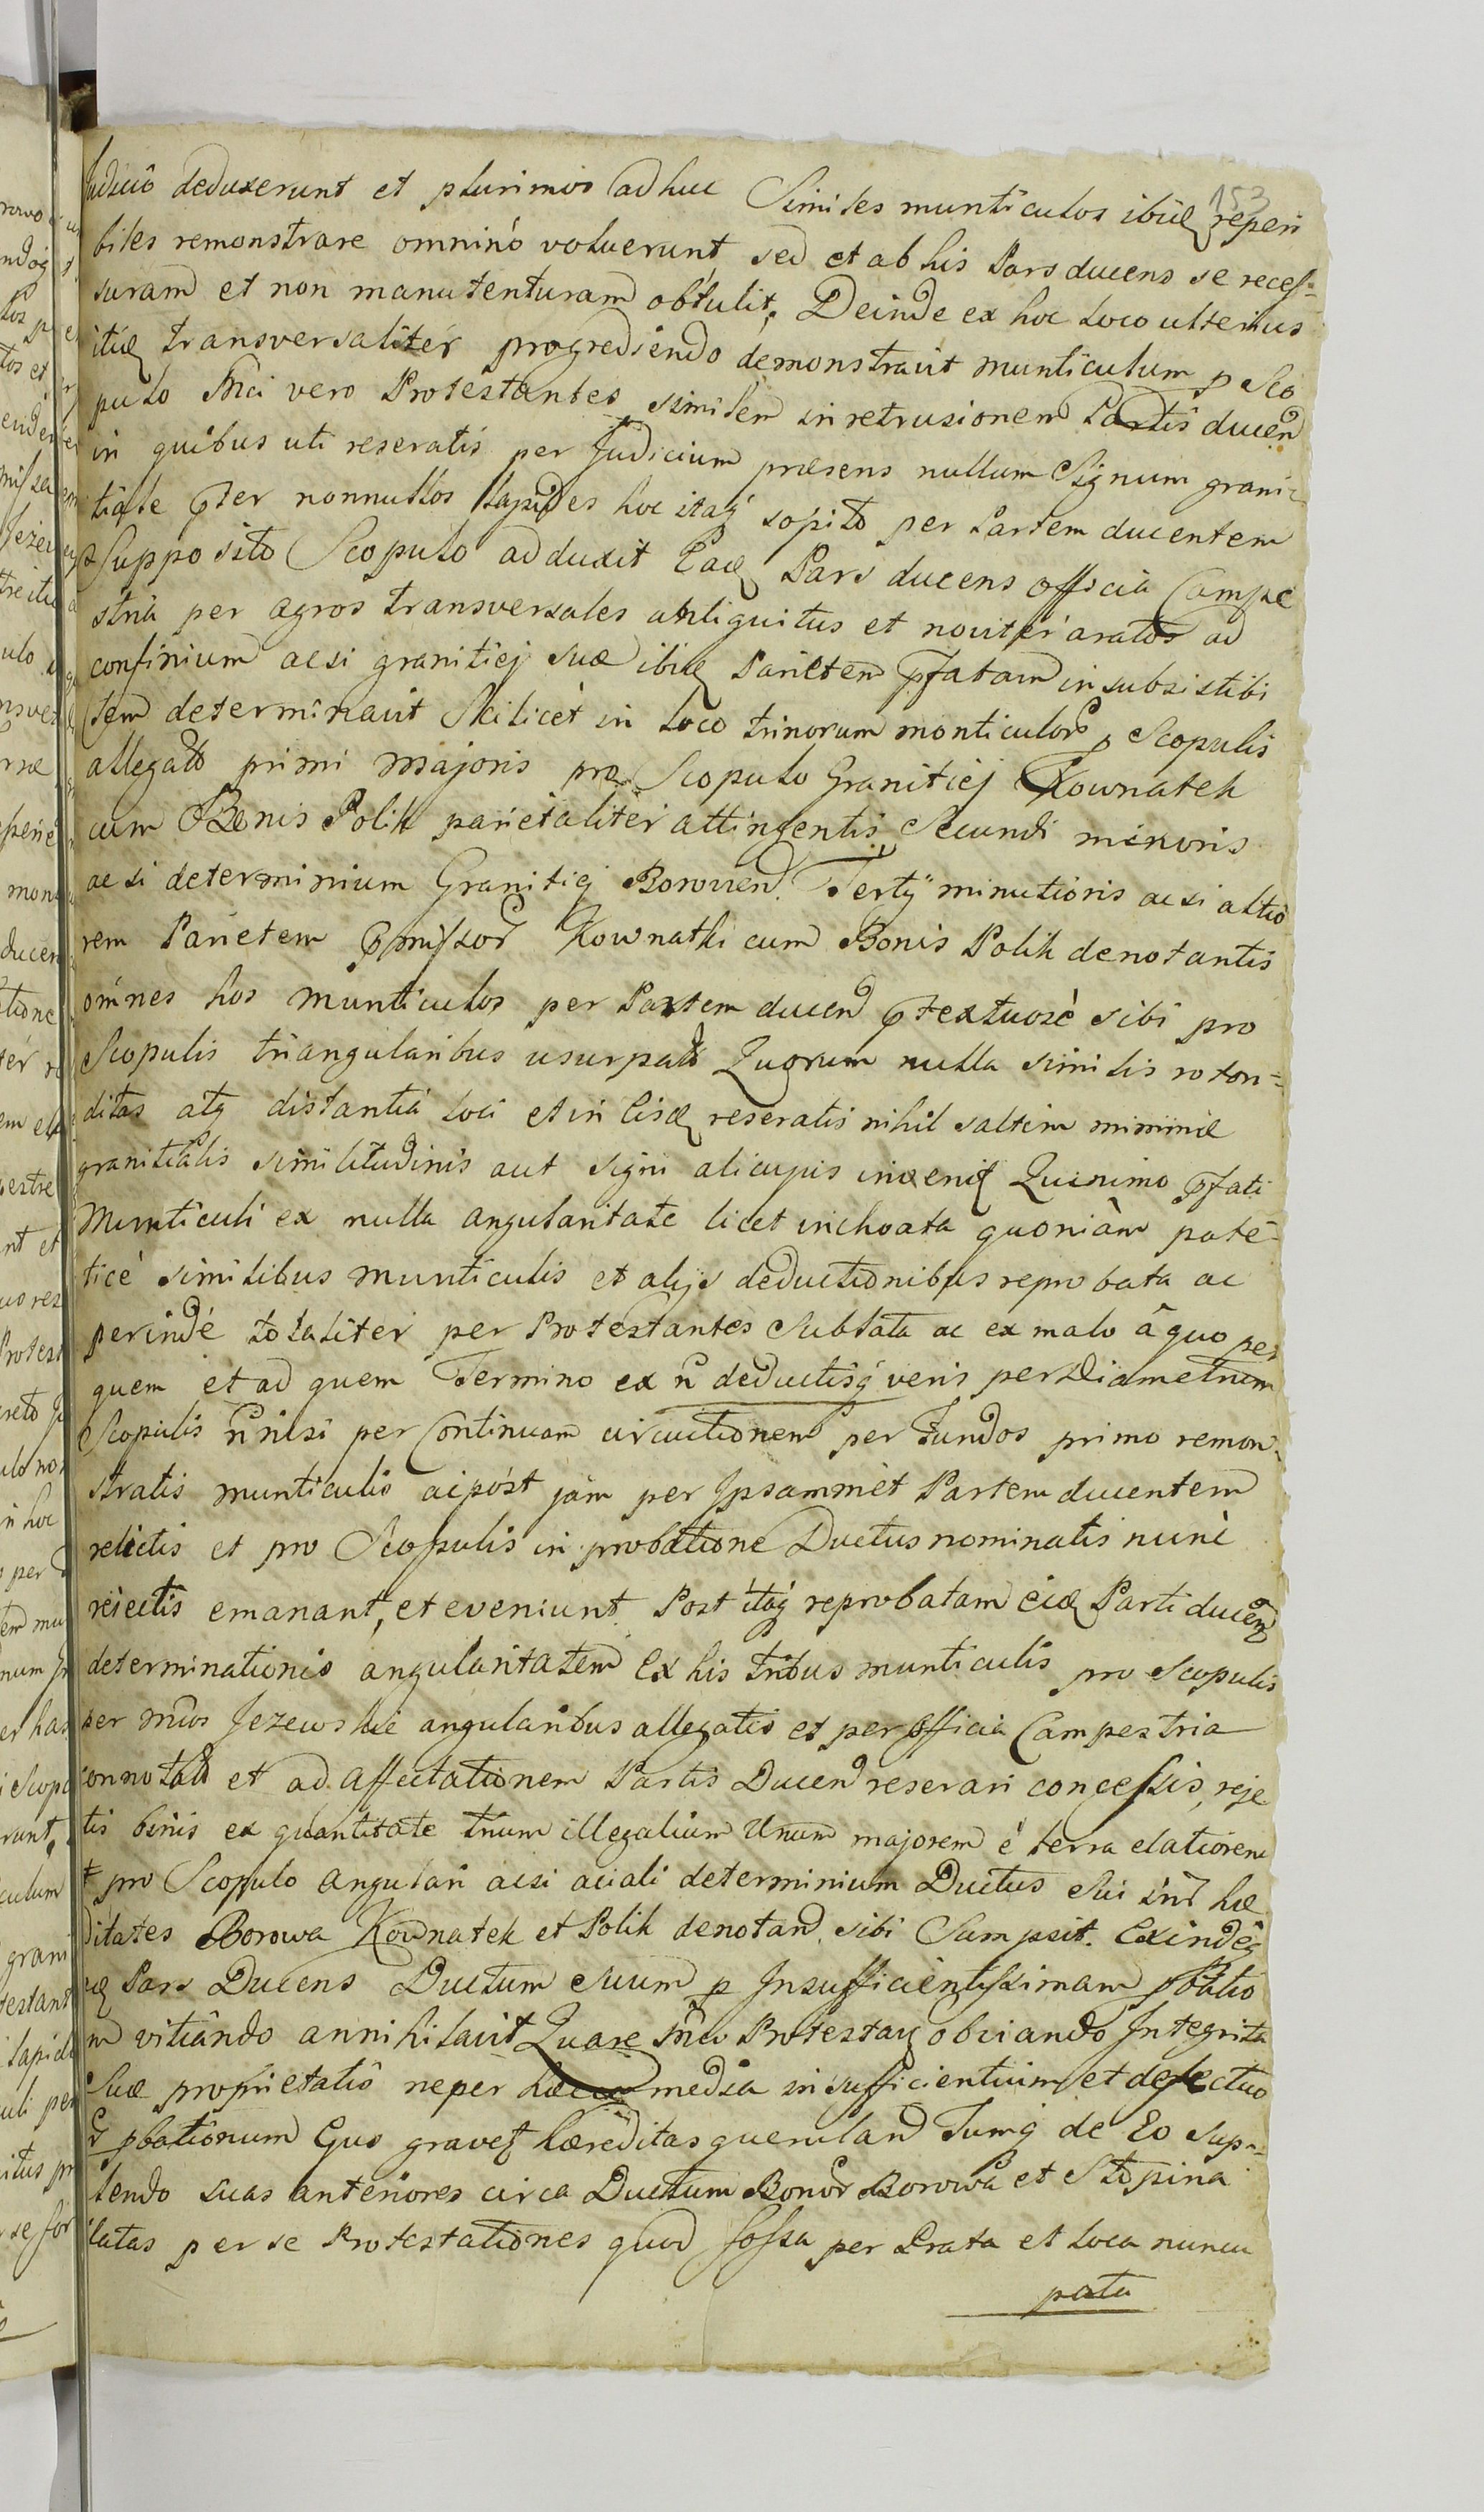 153
Judicio deduxerunt et plurimos adhuc Similes munticulos ibidq reperi
biles remonstrare omninò voluerunt sed et ab his Pars ducens se recess=
suram et non manutenturam obtulit. Deinde ex hoc loco ulterius
itidq transversalitèr progrediendo demonstravit munticulum p Sco
pulo Mci vero Protestantes similem in retrusionem Partis ducen
in quibus uti reseratis per Judicium præsens nullum Signum grani=
tiale pter nonnullos lapides hoc itaq sopito per Partem ducentem
Supposito Scopulo adduxit Eadq Pars ducens officia Campe
stria per agros transversales antiquitus et noviter aratos ad
confinium acsi granitiej suæ ibidq Parietem pfatam insubsistibi
lem determinavit Scilicet in loco trinorum monticulor p Scopulis
allegato primi majoris pro Scopulo Granitiej Kownatek
cum Bonis Polik parietaliter attingentis, Secundi minoris
acsi determinium Granitiej Borowen Tertij minutioris acsi altio
rem Parietem pmissor Kownatki cum Bonis Polik denotantis
omnes hos munticulos per Partem ducen ptextuosè sibi pro
Scopulis triangularibus usurpato Quorum nulla similis roton=
ditas atq distantia loci et in eisdq reseratis nihil saltim minimæ
granitialis similitudinis aut signi alicujus invenit Quinimo pfati
Munticuli ex nulla angularitate licet inchoata quoniàm pate-
ticè similibus munticulis et alijs deductionibus reprobata ac
perindè totaliter per Protestantes sublata ac ex malo â quo per
quem et ad quem Termino ex n deductisq veris per Diametrum
Scopulis n nisi per Continuam circuitionem per Fundos primo remon=
stratis munticulis ac pòst jàm per Ipsammèt Partem ducentem
relictis et pro Scopulis in probatione Ductus nominatis nunc
reiectis emanant, et eveniunt Post itaq reprobatam Eidq Parti ducen
determinationis angularitatem Ex his tribus munticulis pro Scopulis
per Mcos Jezewskie angularibus allegatis et per officia Campestria
connotato et ad affectationem Partis Ducen reserari concessis, reje
tis binis ex quantitate trium illegalium Unum majorem è terra elatiorem
pro Scopulo angulari acsi aciali determinium Ductus Sui int hæ
ditates Borowa Kownatek et Polik denotand sibi Sumpsit. Exindeq
Pars Ducens Ductum Suum p Insufficientissimam pbatio
m vitiando annihilavit Quare Mci Protestan obviando Integrita
Suæ proprietatis ne per hæc media insufficientium et defectuo
pbationum Ejus gravet hæreditas queruland Tumq de Eo sup=
lendo suas anteriores circa Ductum Bonor Borowa et Stopina
latas per se Protestationes quod fossa per Prata et loca nuncu
pata